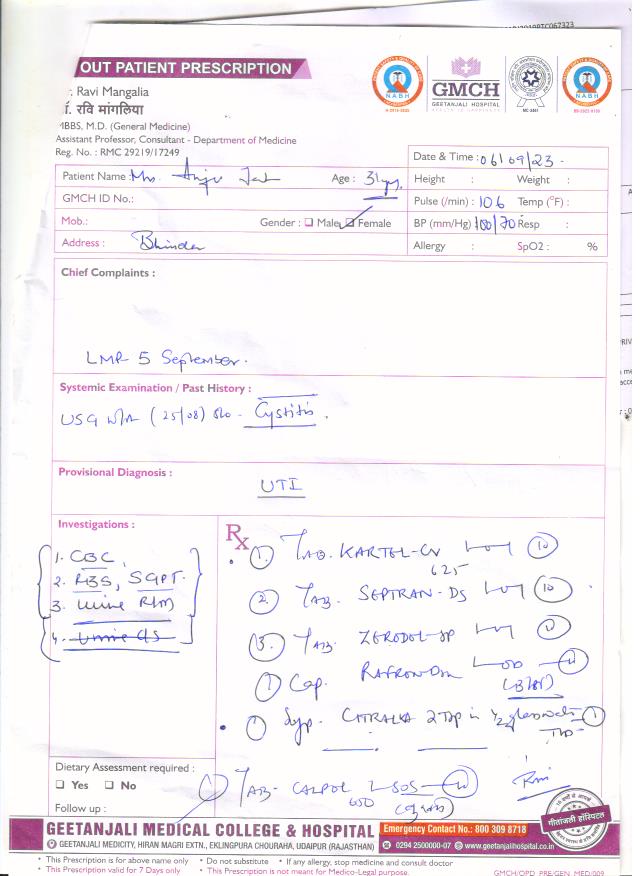 OUT PATIENT PRESCRIPTION
Ravi Mangalia
डॉ. रवि मांगलिया
MBBS, M.D. (General Medicine)
Assistant Professor, Consultant - Department of Medicine
Reg. No. : RMC 29219/17249
NABH
GMCH
GEETANJALI HOSPITAL
NABH
Date & Time : 06/09/23
Patient Name : Mrs. Anju Jat Age : 31 yrs
Height : Weight :
GMCH ID No.:
Pulse (/min) : 106 Temp (°F) :
Mob.: Gender : ☐ Male ☑ Female
BP (mm/Hg) 100/70 Resp :
Address : Bhinder
Allergy : SpO2 : %
Chief Complaints :
LMP 5 September.
Systemic Examination / Past History :
USG W/A (25/08) s/o - Cystitis.
Provisional Diagnosis :
UTI
Investigations :
1. CBC
2. RBS, SGPT.
3. Urine R/M
4. Urine CS
Rx
1 TAB. 625 10
2. TAB. SEPTRAN-DS 10
3. TAB. ZERODOL-SP
1 Cap. OD (BBF)
1 Syp. CITRALKA 2 Tsp in 1/2 glass water 1
TDS
TAB- CALPOL 650 SOS 10
Dietary Assessment required :
☐ Yes ☐ No
Follow up :
गीतांजली हॉस्पिटल
GEETANJALI MEDICAL COLLEGE & HOSPITAL
Emergency Contact No.: 800 309 8718
GEETANJALI MEDICITY, HIRAN MAGRI EXTN., EKLINGPURA CHOURAHA, UDAIPUR (RAJASTHAN)
0294 2500000-07 www.geetanjalihospital.co.in
• This Prescription is for above name only • Do not substitute • If any allergy, stop medicine and consult doctor
• This Prescription valid for 7 Days only • This Prescription is not meant for Medico-Legal purpose.
GMCH/OPD PRE/GEN. MED/009